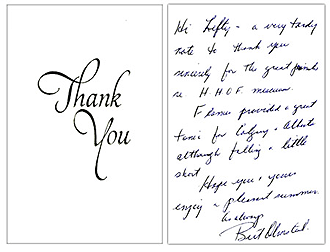 Thank
You
Hi Lefty - a very tardy
note to thank you
sincerely for the great
re. H.H.O.F. museum.
provided a great
for Calgary & Alberta
although falling a little
short.
Hope you & yours
enjoy a pleasant summer.
As always
Bert Olmstead.